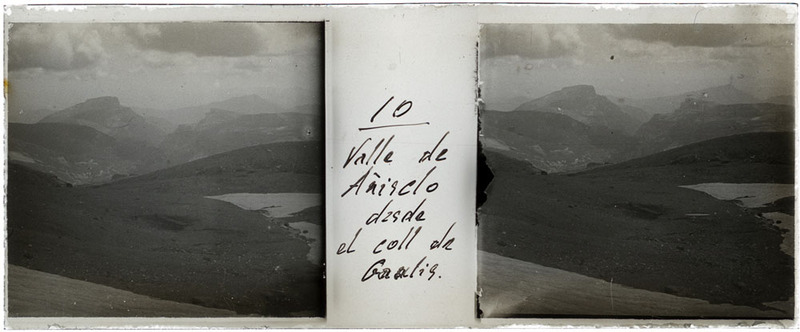 10
Valle de
Añisclo
desde
el coll de
Gaulis.